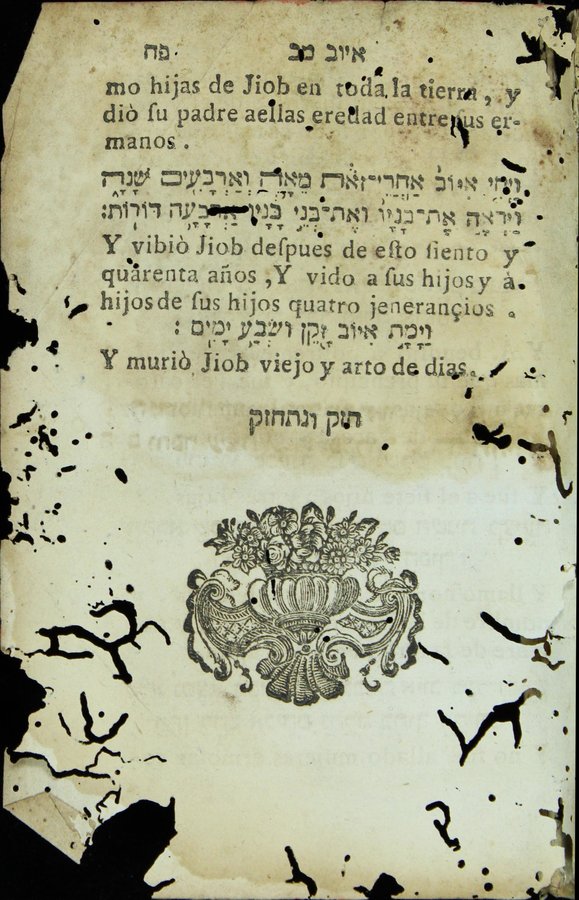 איוב מב פח
mo hijas de Jiob en toda la tierra, y
diò ſu padre aellas eredad entre ſus er-
manos.
וַיְחִי אִיּוֹב אַחֲרֵי־זֹאת מֵאָה וְאַרְבָּעִים שָׁנָה
וַיִּרְאֶה אֶת־בָּנָיו וְאֶת־בְּנֵי בָנָיו אַרְבָּעָה דֹּרוֹת:
Y vibiò Jiob deſpues de eſto ſiento y
quarenta años, Y vido a ſus hijos y à
hijos de ſus hijos quatro jenerançios.
וַיָּמָת אִיּוֹב זָקֵן וּשְׂבַע יָמִים:
Y muriò Jiob viejo y arto de dias.
חזק ונתחזק